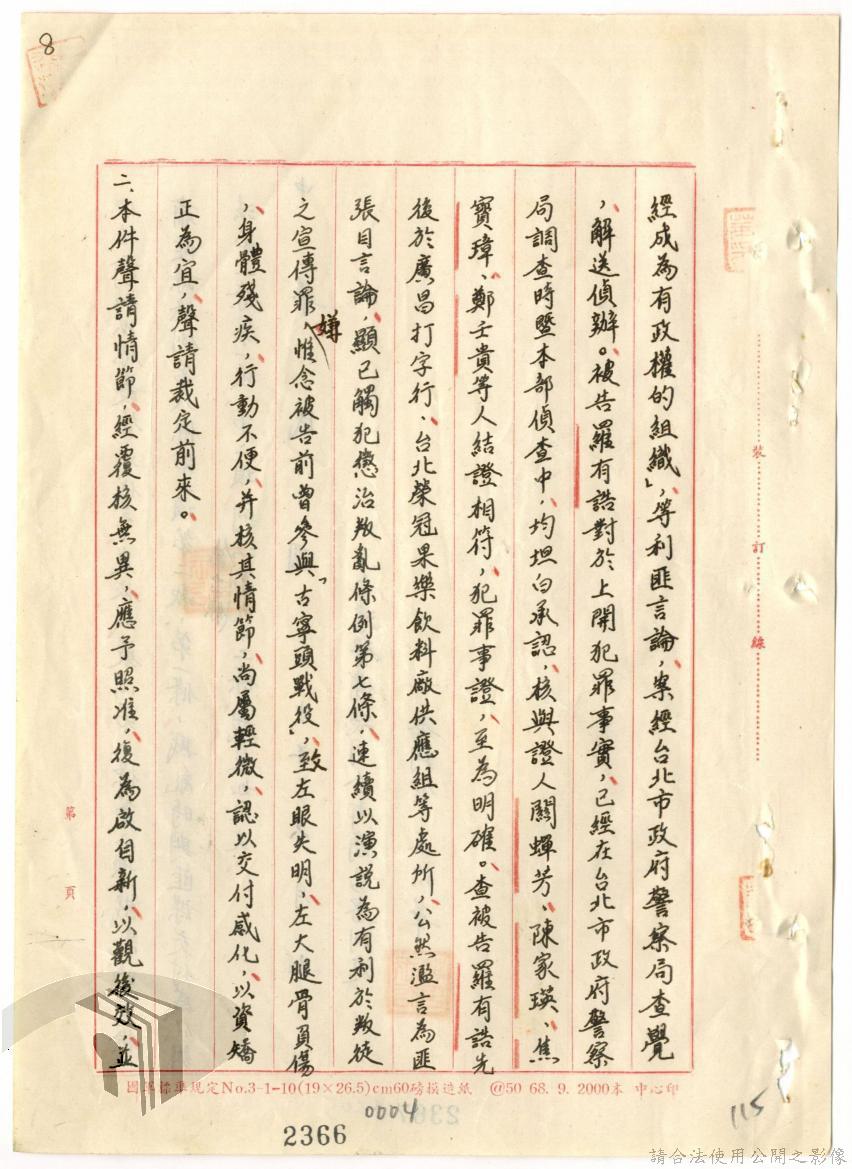 8
經成為有政權的組織」,等利匪言論,案經台北市政府警察局查覺
,解送偵辦。被告羅有誥對於上開犯罪事實,已經在台北市政府警察
局調查時暨本部偵查中,均坦白承認,核與證人關蟬芳、陳家瑛、焦
寶瑋、鄭壬貴等人結證相符,犯罪事證,至為明確。查被告羅有誥先
後於廣昌打字行、台北榮冠果樂飲料廠供應組等處所,公然濫言為匪
張目言論,顯已觸犯懲治叛亂條例第七條,連續以演說為有利於叛徒
之宣傳罪嫌惟念被告前曾參與「古寧頭戰役」,致左眼失明,左大腿骨負傷
,身體殘疾,行動不便,并核其情節,尚屬輕微,認以交付感化,以資矯
正為宜,聲請裁定前來。
二、本件聲請情節,經覆核無異,應予照准,復為啟自新,以觀後效,並
裝
訂
線
第 頁
國軍標準規定No.3-1-10(19×26.5)cm60磅模造紙 @50 68. 9. 2000本 中心印
0004
2366
115
請合法使用公開之影像